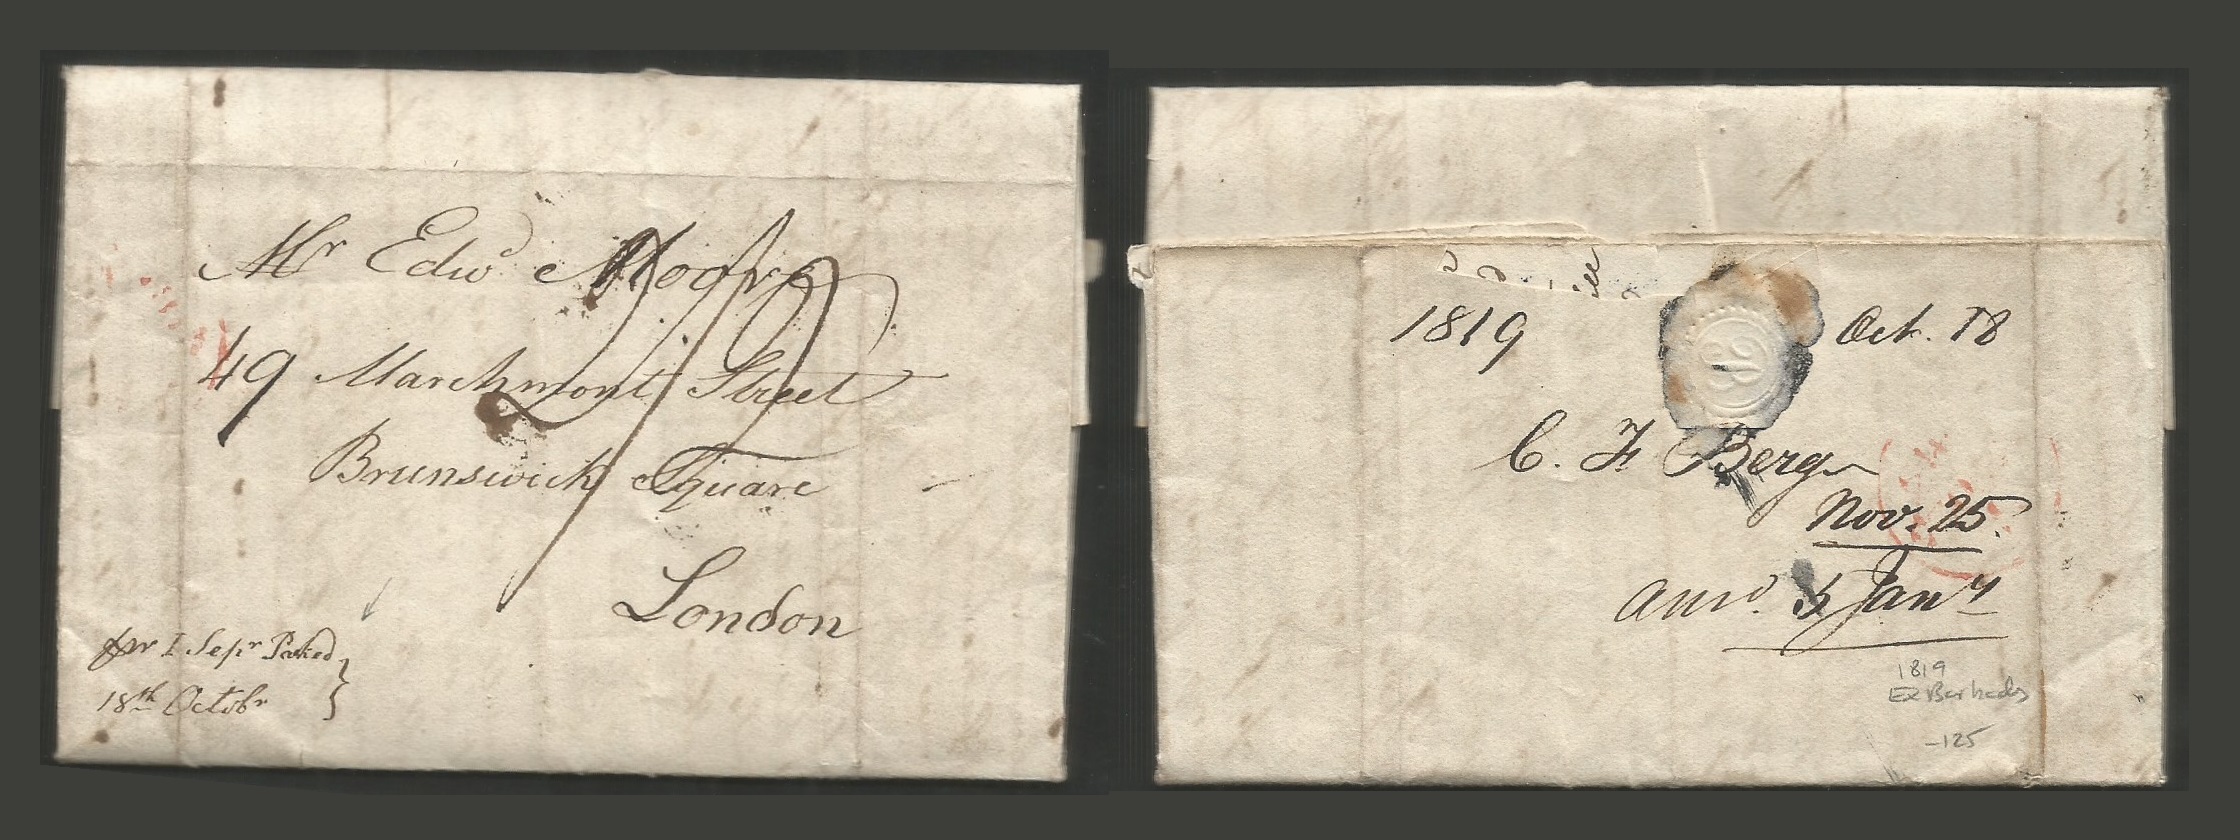 Mr Edwd Moore
49 Marchmont Street
Brunswick Square
London
pr 1 Sepr Packed
18th Octobr
2/2
1819 Oct. 18
C. F. Berg
Nov. 25.
Ansd. 5 Jany
1819
Ex Barbados
-125